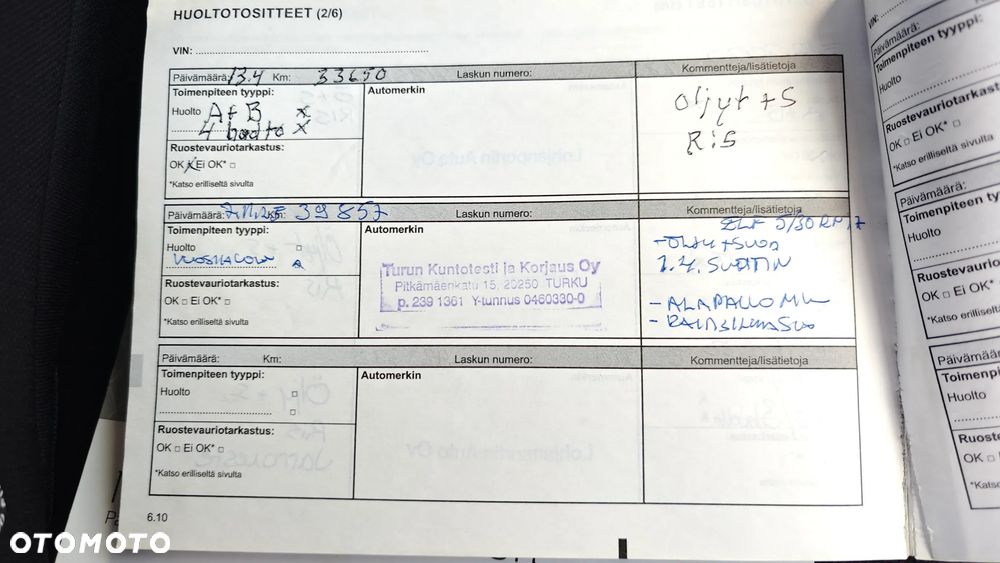 HUOLTOTOSITTEET (2/6)
VIN:
Päivämäärä: 13.4 Km: 33650 Laskun numero: Kommentteja/lisätietoja
Toimenpiteen tyyppi: Automerkin
Huolto A+B x
4 x
öljyt + S
RiS
Ruostevauriotarkastus:
OK x Ei OK* □
*Katso erilliseltä sivulta
Päivämäärä: Km: 39857 Laskun numero: Kommentteja/lisätietoja
Toimenpiteen tyyppi: Automerkin
ELF 5/30
Huolto □
VUOSIHUOLTO
-ÖLJY + SUOD
Turun Kuntotesti ja Korjaus Oy
Pitkämäenkatu 15, 20250 TURKU
p. 239 1361 Y-tunnus 0460330-0
Ruostevauriotarkastus:
OK □ Ei OK* □
*Katso erilliseltä sivulta
- ALAPALLO
- RAITISILMASUO
Päivämäärä: Km: Laskun numero: Kommentteja/lisätietoja
Toimenpiteen tyyppi: Automerkin
Huolto □
□
Ruostevauriotarkastus:
OK □ Ei OK* □
*Katso erilliseltä sivulta
6.10
VIN:
Päivämäärä:
Toimenpiteen tyyppi:
Huolto
Ruostevauriotarkast
OK □ Ei OK* □
*Katso erilliseltä sivulta
Päivämäärä:
Toimenpiteen tyy
Huolto
Ruostevauriota
OK □ Ei OK* □
*Katso erilliseltä
Päivämäärä:
Toimenpi
Huolto
Ruoste
OK □
*Kats
OTOMOTO